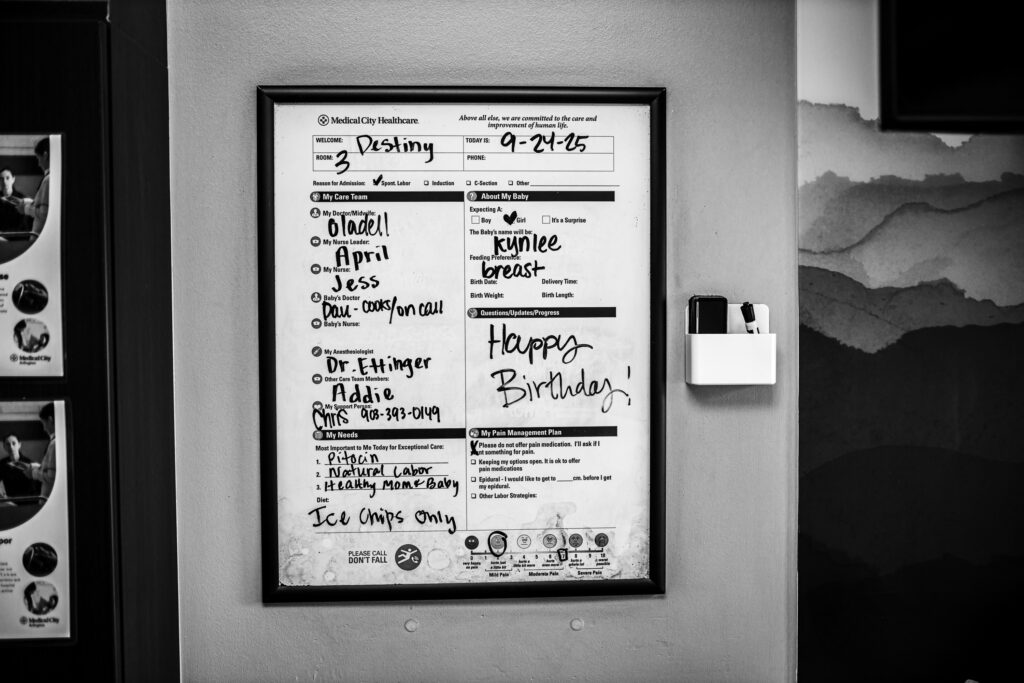 Medical City Healthcare
Above all else, we are committed to the care and
improvement of human life.
WELCOME: Destiny
TODAY IS: 9-24-25
ROOM: 3
PHONE:
Reason for Admission: Spont. Labor Induction C-Section Other
My Care Team
My Doctor/Midwife:
Oladell
My Nurse Leader:
April
My Nurse:
Jess
Baby's Doctor
Dau - Cooks/on call
Baby's Nurse:
My Anesthesiologist
Dr. Ettinger
Other Care Team Members:
Addie
My Support Person:
Chris 903-393-0149
My Needs
Most Important to Me Today for Exceptional Care:
1. Pitocin
2. Natural Labor
3. Healthy Mom & Baby
Diet:
Ice Chips Only
PLEASE CALL
DON'T FALL
About My Baby
Expecting A:
Boy Girl It's a Surprise
The Baby's name will be:
Kynlee
Feeding Preference:
breast
Birth Date: Delivery Time:
Birth Weight: Birth Length:
Questions/Updates/Progress
Happy
Birthday!
My Pain Management Plan
Please do not offer pain medication. I'll ask if I
want something for pain.
Keeping my options open. It is ok to offer
pain medications
Epidural - I would like to get to ____cm. before I get
my epidural.
Other Labor Strategies:
Mild Pain Moderate Pain Severe Pain
Medical City
Arlington
Medical City
Arlington